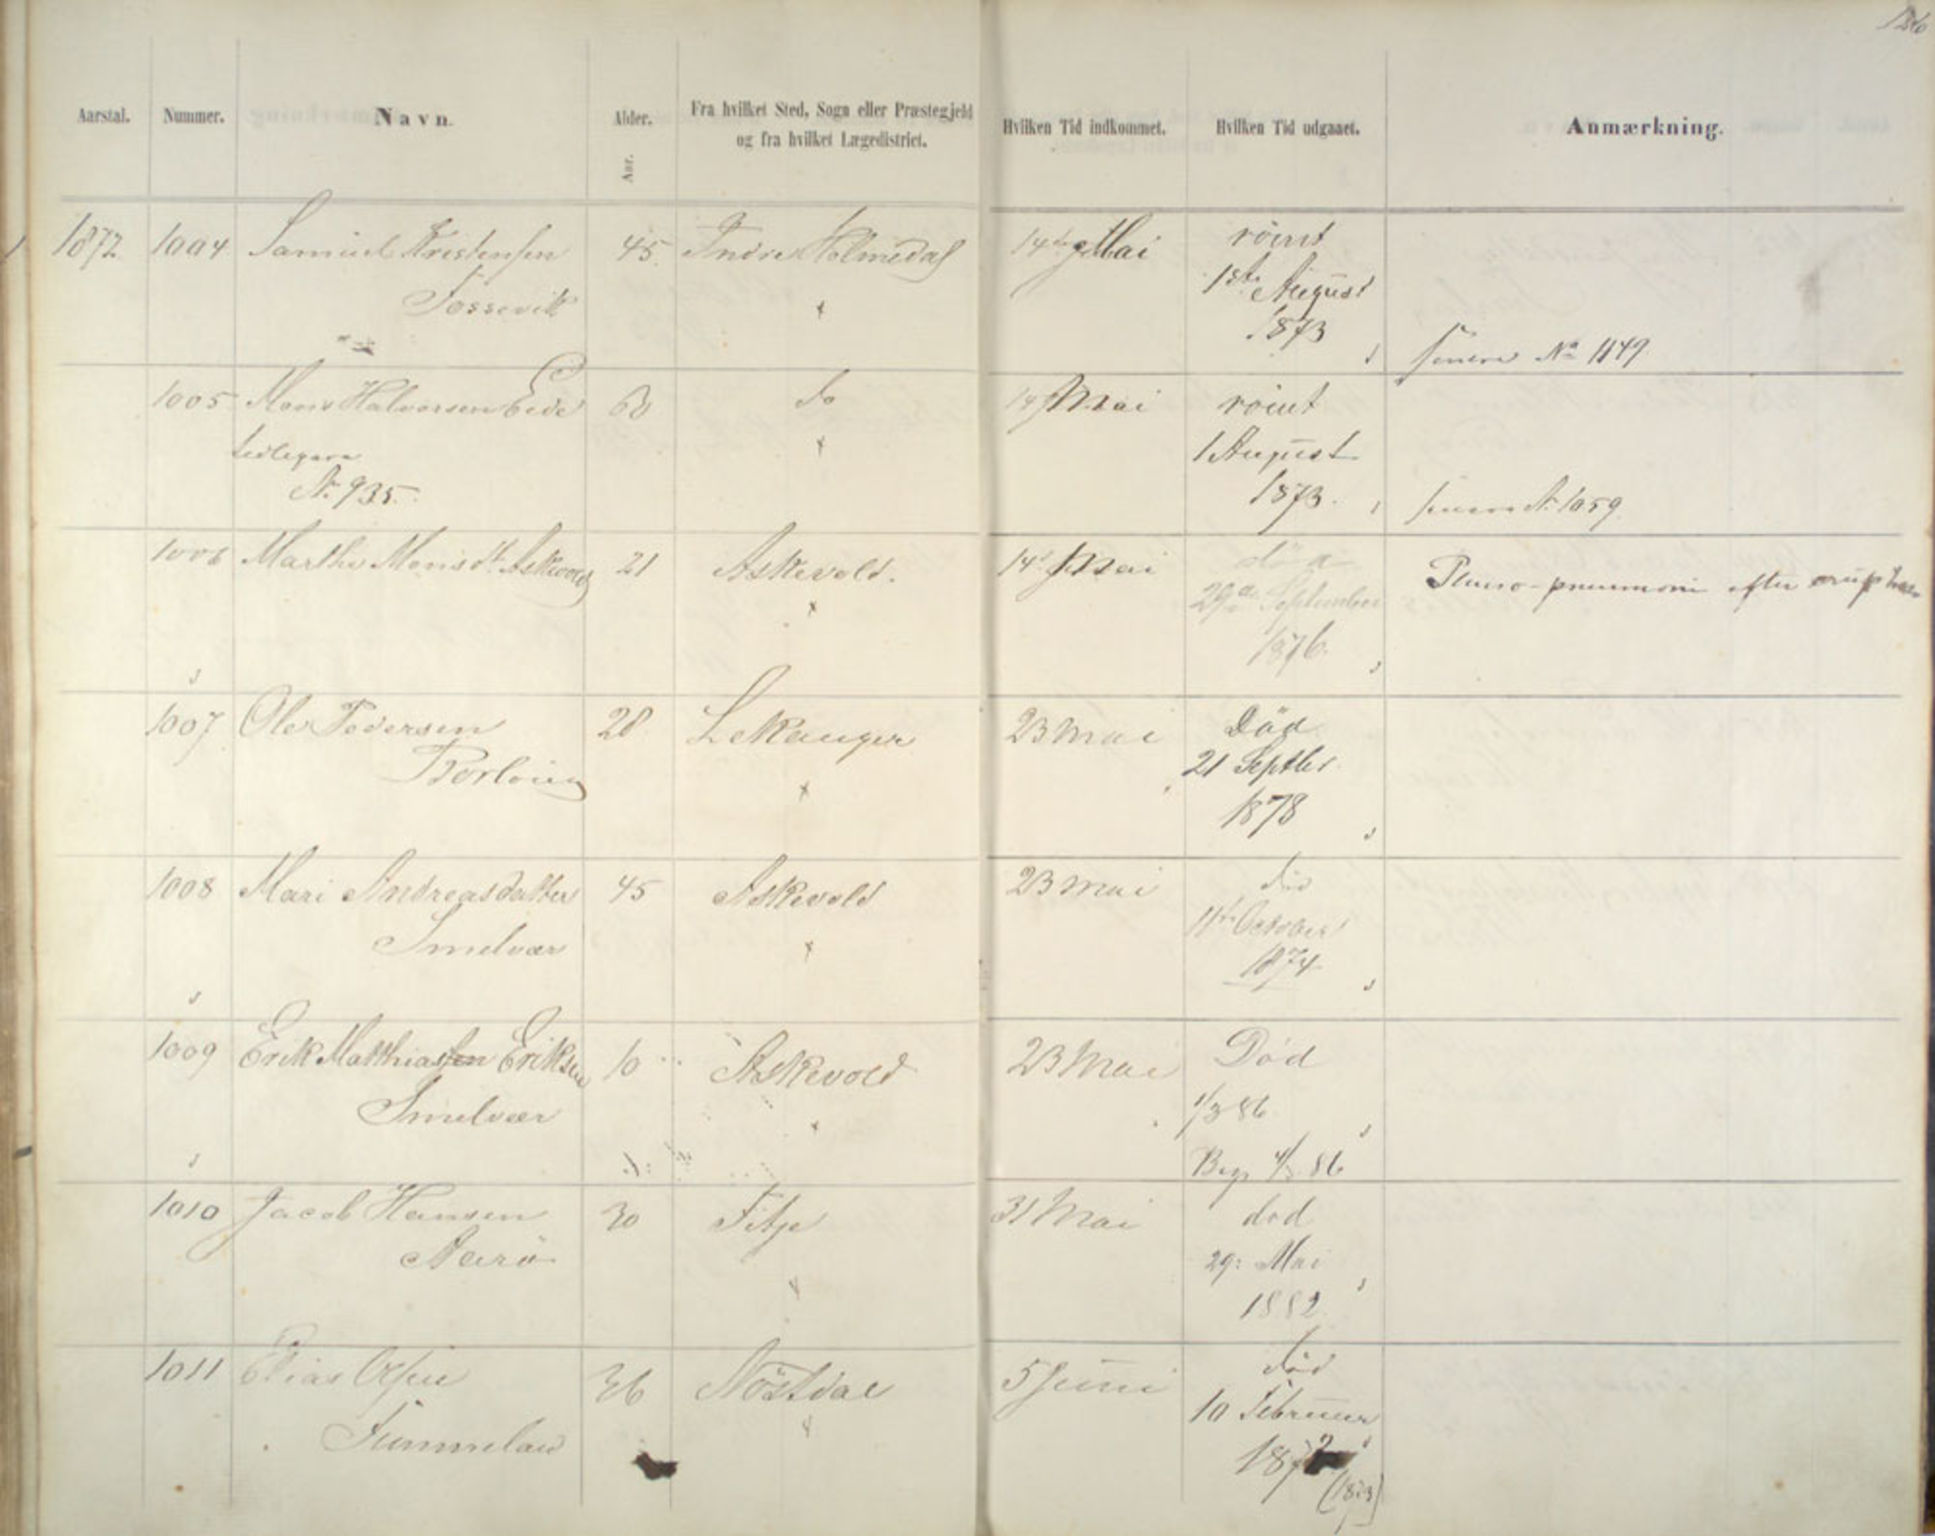 Aarstal. Nummer. Navn. Alder. Aar. Fra hvilket Sted, Sogn eller Præstegjeld
og fra hvilket Lægedistrict. Hvilken Tid indkommet. Hvilken Tid udgaaet. Anmærkning.
1872 1004 Samuel Kristensen 45 Indre Holmedal 14de Mai römt
Fossevik 1ste August
1873
senere No 1149
1005 Mons Halvorsen Eide 60 do 14 Mai römt
tidligere 1 August
N. 935. 1873.
senere N. 1059
1006 Marthe Monsdt. Askevold 21 Askevold. 14de Mai död
29de September
1876.
Pleuro-pneumoni efter
1007 Ole Pedersen 28 Lekanger 23 Mai Död
21 Septbr.
1878
1008 Mari Andreasdatter 45 Askevold 23 Mai död
Smelvær 11te October
1874
1009 Erik Matthiassen Eriksen 10 Askevold 23 Mai Död
Smelvær 1/3 86
Beg. 4/3 86
1010 Jacob Hansen 30 Fitje 31 Mai död
Aarö 29: Mai
1882
1011 Elias Olsen 36 Nöstdal 5 Juni död
10 Februar
(1873)